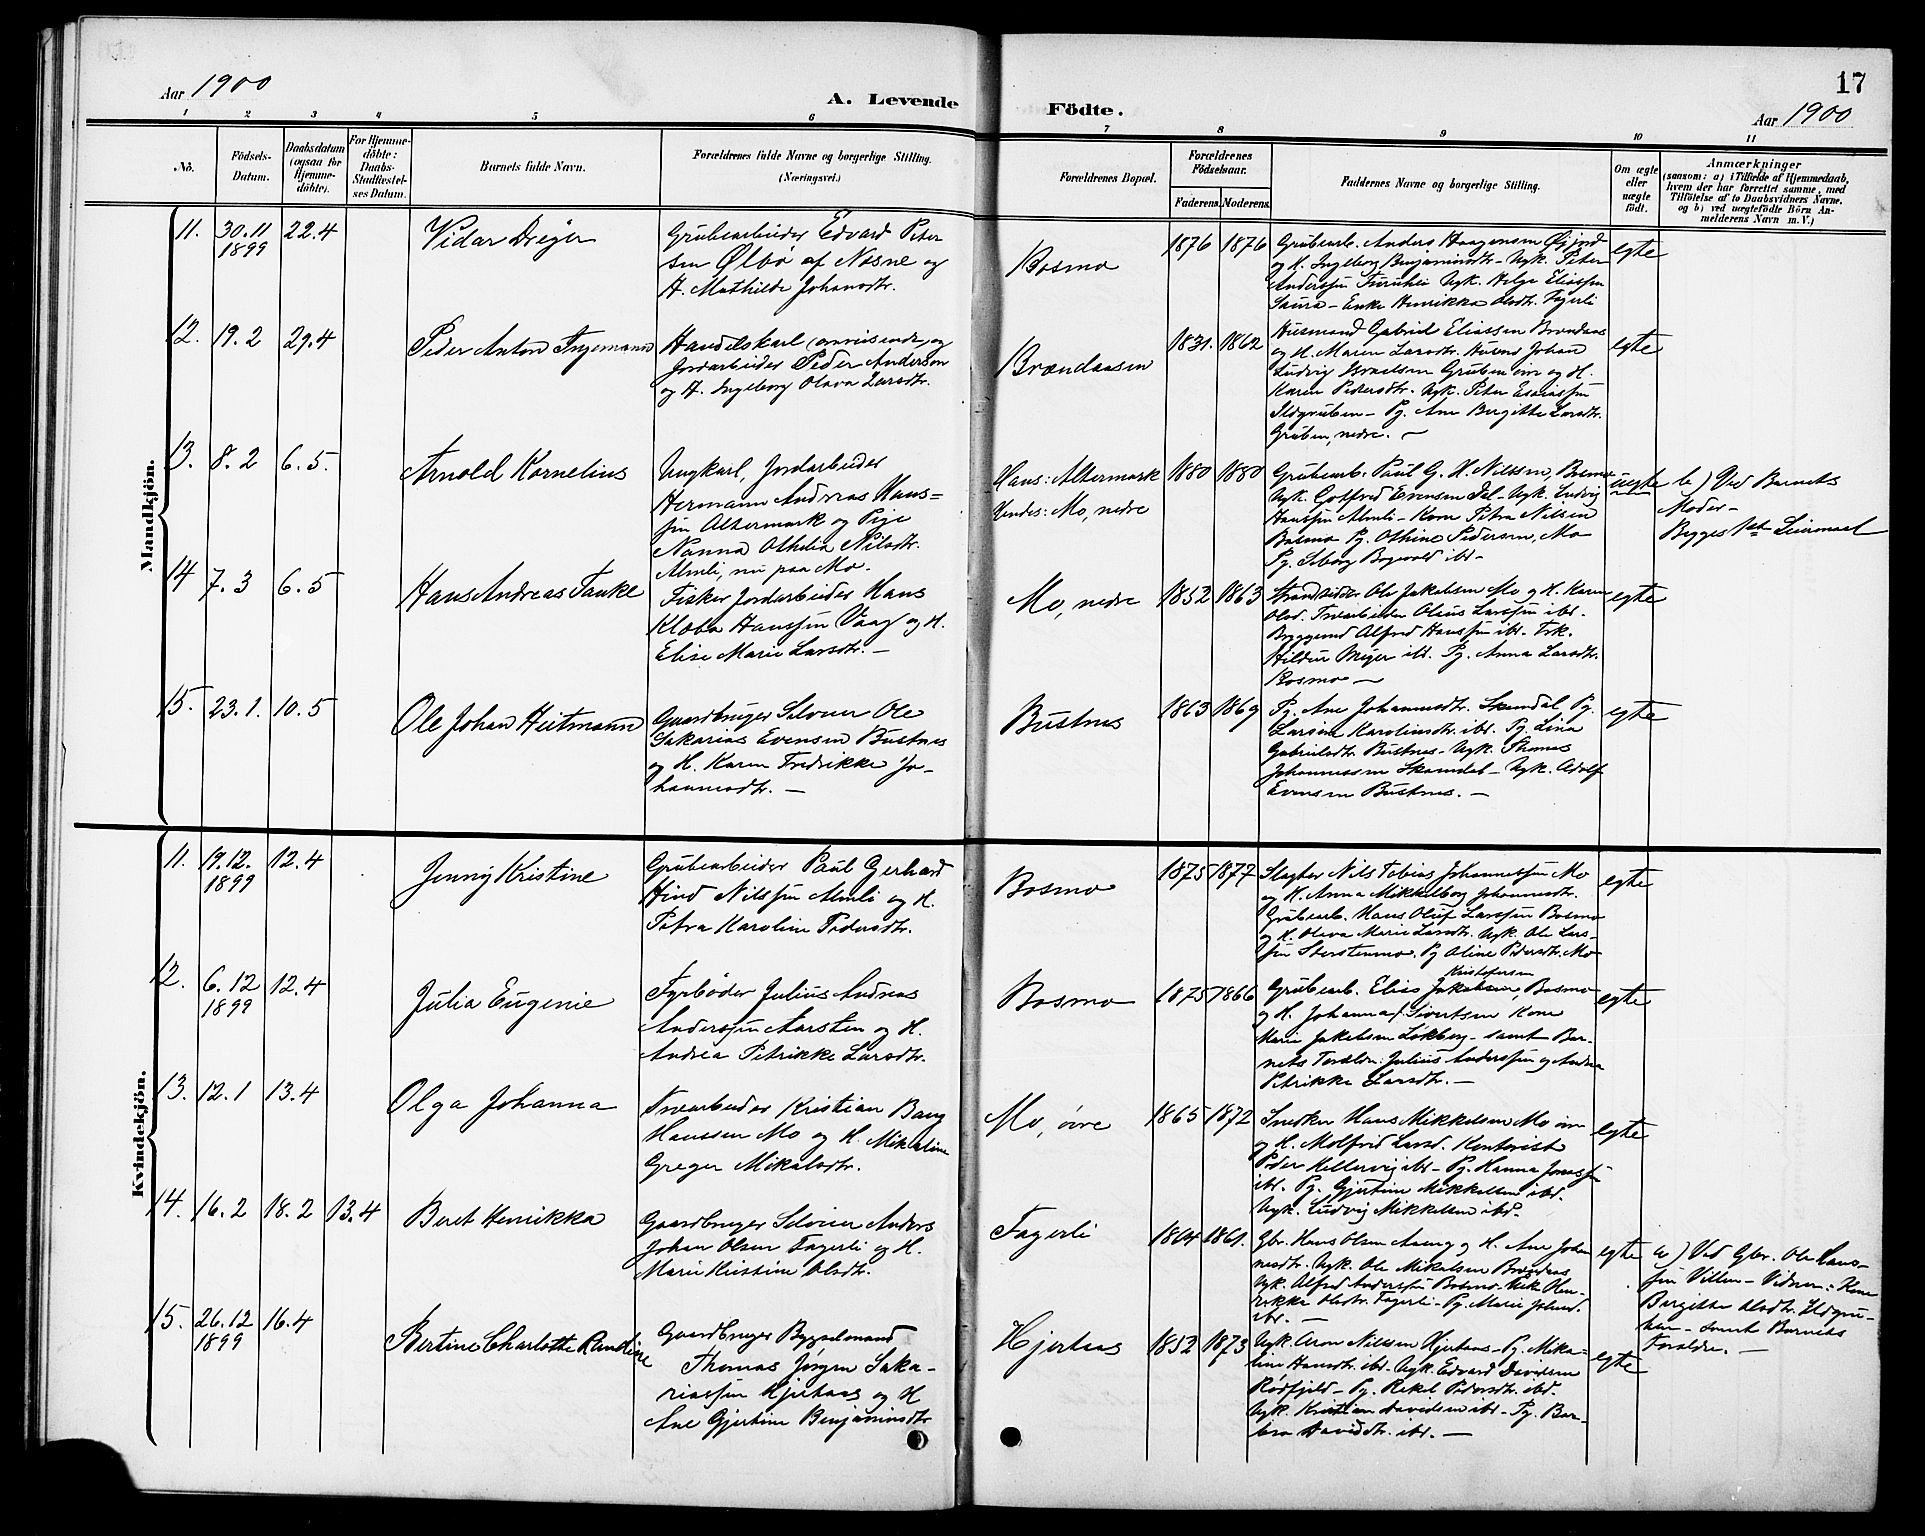 17
Aar 1900
A. Levende Födte.
Aar 1900
1 2 3 4 5 6 7 8 9 10 11
No.
Födsels-Datum.
Daabsdatum (ogsaa for Hjemme-döbte).
For Hjemme-döbte: Daabs-Stadfæstel-ses Datum.
Barnets fulde Navn.
Forældrenes fulde Navne og borgerlige Stilling.
(Næringsvei.)
Forældrenes Bopæl.
Forældrenes Födselsaar.
Faderens. Moderens.
Faddernes Navne og borgerlige Stilling.
Om ægte eller uægte födt.
Anmærkninger
(saasom: a) i Tilfælde af Hjemmedaab,
hvem der har forrettet samme, med
Tilföielse af to Daabsvidners Navne.
og b) ved uægtefödte Börn An-
melderens Navn m. V.)
Mandkjön.
11. 30.11 1899 22.4 Vidar Dreyer
Grubearbeider Edvard Peter
sen Ølbo af Nesne og
H. Mathilde Johansdtr.
Bosmo
1876 1876
Grubearb. Anders Haagensen Øijord
og H. Ingeborg Benjaminsdtr. Ugk. Peter
Anderssen Furuhei Ugk. Helge Eliassen
Saura – Enke Henrikka Olsdtr. Fagerli
egte
12. 19.2 29.4 Peder Anton Ingemann
Handelskarl (omreisende) og
Jordarbeider Peder Anderson
og H. Ingeborg Olava Larsdtr.
Brændaasen
1831. 1862
Husmand Gabriel Eliassen Brændaas
og H. Maren Larsdtr. Husmd Johan
Ludvig Israelsen Gruben øvre og H.
Karen Pedersdtr. Ugk. Peter Esaiassen
Ildgruben – Pg. Ane Birgitte Larsdtr.
Gruben, nedre. –
egte
13. 8.2 6.5. Arnold Kornelius
Ungkarl, Jordarbeider
Hermann Andreas Hans=
sen Altermark og Pige
Nanna Othelia Nilsdtr.
Almli, nu paa Mo.
Hans: Altermark
Hendes: Mo, nedre
1880 1880
Grubearb. Paul G. H. Nilssen, Bosmo
Ugk. Gotfred Evensen Dal – Ugk. Ludvig
Hanssen Almli – Kone Petra Nilsen
Bosmo Pg. Othine Pedersen, Mo
Pg. ibd. –
uegte
b) Ved Barnets
Moder –
Begges 1ste Leiermaal
14 7.3 6.5 Hans Andreas Tanke
Fisker Jordarbeider Hans
Kløbo Hanssen Vaag og H.
Elise Marie Larsdtr. –
Mo, nedre
1852 1863
Strandsidder Ole Jakobsen Mo og H. Karen
Olsd. Træarbeider Olaus Larssen ibd.
Byggmd Alfred Hanssen ibd. Frk.
Hildur Meyer ibd. Pg. Anna Larsdtr.
Bosmo –
egte
15. 23.1. 10.5 Ole Johan Heitmann
Gaardbruger Selveier Ole
Sakarias Evensen Bustnes
og H. Karen Fredrikke Jo-
hannesdtr. –
Bustnes
1863 1869
Pg. Ane Johannesdtr. Skamdal, Pg.
Larsine Karolinedtr. ibd. Pg. Lina
Gabrielsdtr. Bustnes – Ugk. Thomas
Johannessen Skamdal – Ugk. Adolf
Evensen Bustnes. –
egte
Kvindekjön.
11. 19.12. 1899 12.4 Jenny Kristine
Grubearbeider Paul Gerhard
Hind Nilssen Almli og H.
Petra Karoline Pedersdtr.
Bosmo
1875 1877
Slagter Nils Tobias Johannessen Mo
og H. Anna Mikkelborg Johannesdtr.
Grubearb. Hans Oluf Larssen Bosmo
og H. Olava Marie Larsdtr. Ugk. Ole Lars-
sen Storstenmo. Pg Aline Pedersdtr. Mo
egte
12. 6.12 1899 12.4 Julia Eugenie
Fyrbøder Julius Andreas
Anderssen Aarsten og H.
Andrea Petrikke Larsdtr.
Bosmo
1875 1866
Kristofersen
Grubearb. Elias Jakobsen, Bosmo
og H. Johanna/ Sivertsen Kone
Marie Jakobsen Løkberg – samt Bar-
nets Forældre: Julius Anderssen og Andrea
Petrikke Larsdtr. –
egte
13. 12.1 13.4 Olga Johanna
Træarbeider Kristian Bang
Hanssen Mo og H. Mikaline
Greger Mikalsdtr.
Mo, øvre
1865 1872
Snedker Hans Mikkelsen Mo øvre
og H. Molfrid Larsd. Kontorist
Peder Hellervig ibd – Pg. Hanna Jonassen
ibd. Pg. Gjertine Mikkelsen ibd.
Ugk. Ludvig Mikkelsen ibd.
egte
14. 16.2 18.2 13.4 Beret Henrikka
Gaardbruger Selveier Anders
Johan Olsen Fagerli og H.
Marie Kristine Olsdtr.
Fagerli
1864 1861.
Gbr. Hans Olsen Aaeng og H. Ane Johan
nesdtr. Ugk. Ole Mikalsen Brændaas
Ugk. Alfred Anderssen Bosmo – Enke Hen-
rikka Olsdtr. Fagerli – Pg. Marie Johansd.
ibd. –
egte
a) Ved Gbr. Ole Hans-
sen Villen – Vidner: Kone
Birgitte Olsdtr. Ildgru-
ben – samt Barnets
Forældre. –
15. 26.12 1899 16.4 Bertine Charlotte Randine
Gaardbruger Bygselmand
Thomas Jørgen Saka-
riassen Hjertaas og H
Ane Gjertine Benjaminsdtr
Hjertaas
1852 1873
Ugk. Aron Nilssen Hjertaas – Pg. Mika-
line Hansdtr. ibd – Ugk. Edvard Davidsen
Rødfjeld – Pg. Rekel Pedersdtr. ibd.
Ugk. Kristian Davidsen ibd – Pg. Bar-
bra Daviddtr. ibd. –
egte